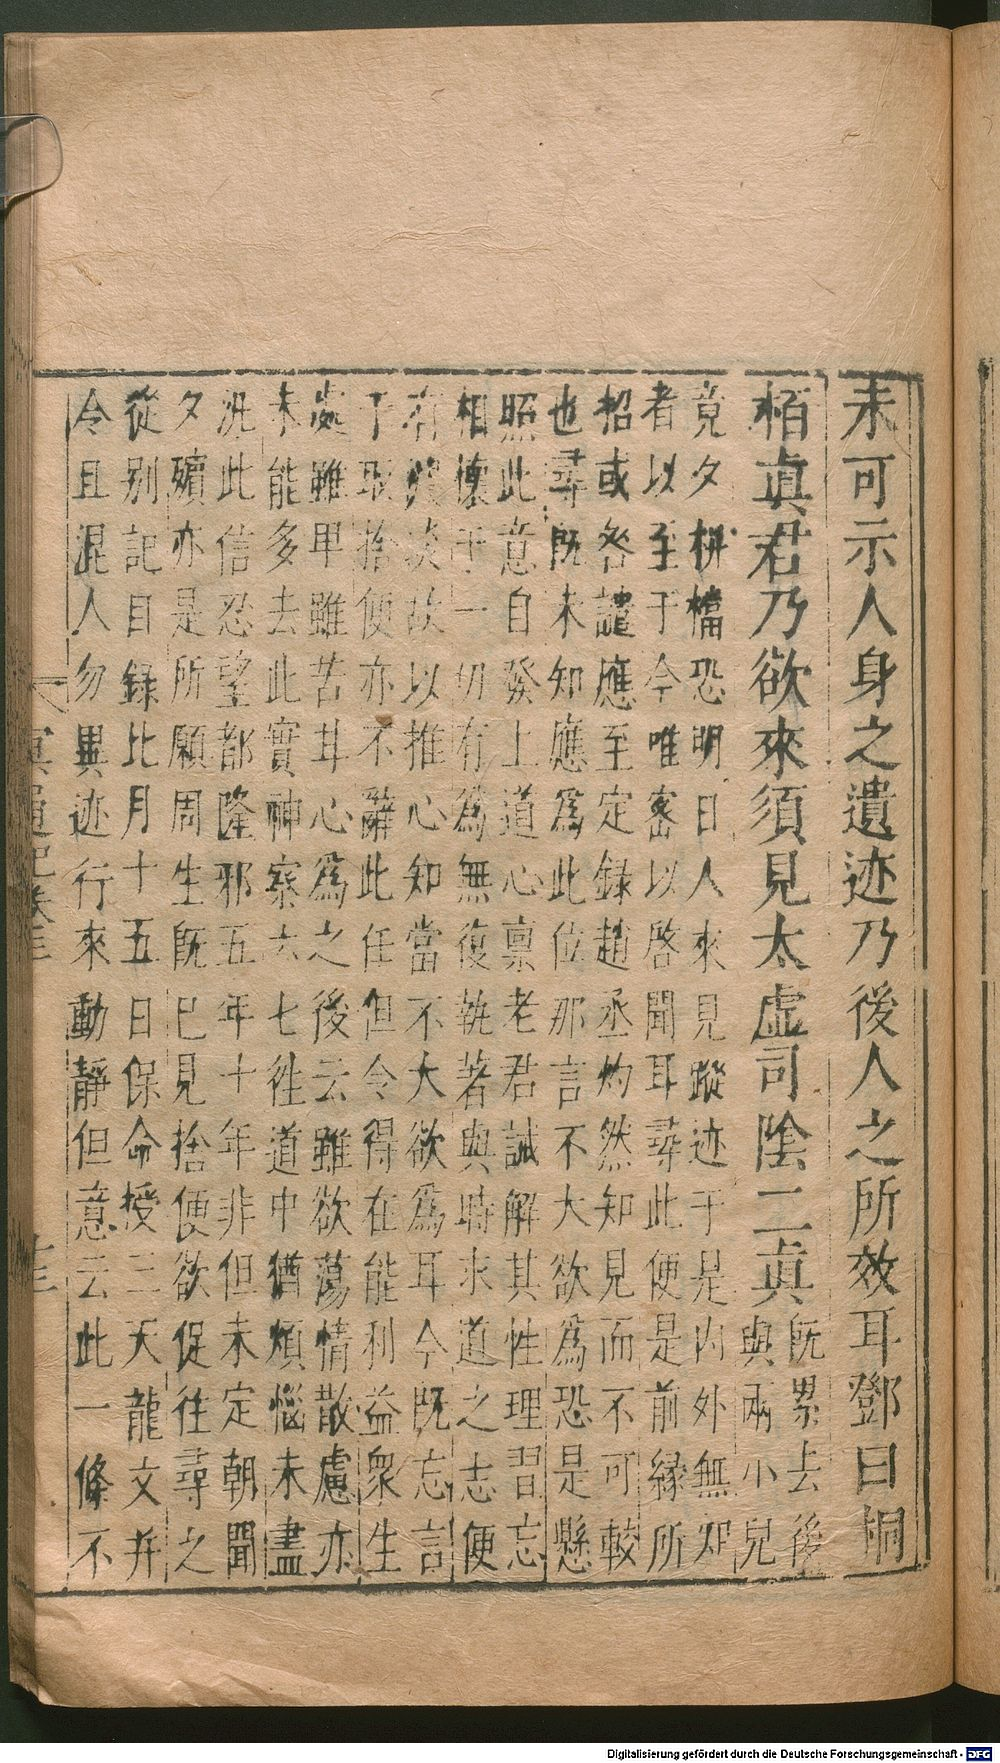 未可示人身之遺迹乃後人之所效耳鄧曰桐
栢眞君乃欲來須見太虛司陰二眞
既累去後
與兩小兒
竟夕栟檔恐明日人來見蹤迹于是内外無
者以至于今唯密以啓聞耳尋此便是前縁所
招或咎譴應至定錄趙丞灼然知見而不可較
也尋既未知應爲此位那言不大欲爲恐是懸
照此意自發上道心禀老君誡解其性理習忘
相懷于一切有爲無復執著與時求道之志便
有淡故以推心知當不大欲爲耳今既忘言
于取捨便亦不辭此任但令得在能利益衆生
處雖甲雖苦甘心爲之後云雖欲蕩情散慮亦
未能多去此實神察六七徃道中猶煩惱未盡
況此信忍望都隆邪五年十年非但未定朝聞
夕殯亦是所願周生既已見捨便欲促往尋之
從别記目録比月十五日保命授三天龍文并
令且混人勿異迹行來動靜但意云此一條不
冥通記卷三
十三
Digitalisierung gefördert durch die Deutsche Forschungsgemeinschaft - DFG